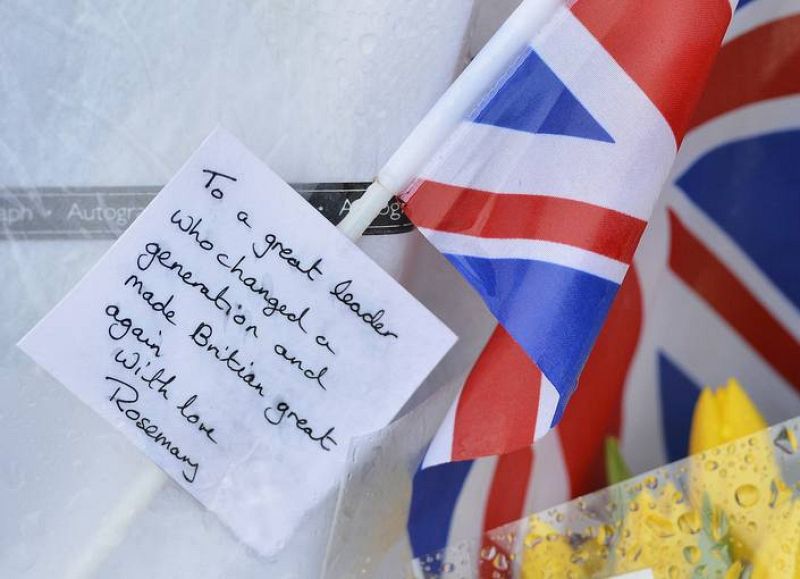 aph · Autogr
A
To a great leader
who changed a
generation and
made Britian great
again
With love
Rosemary